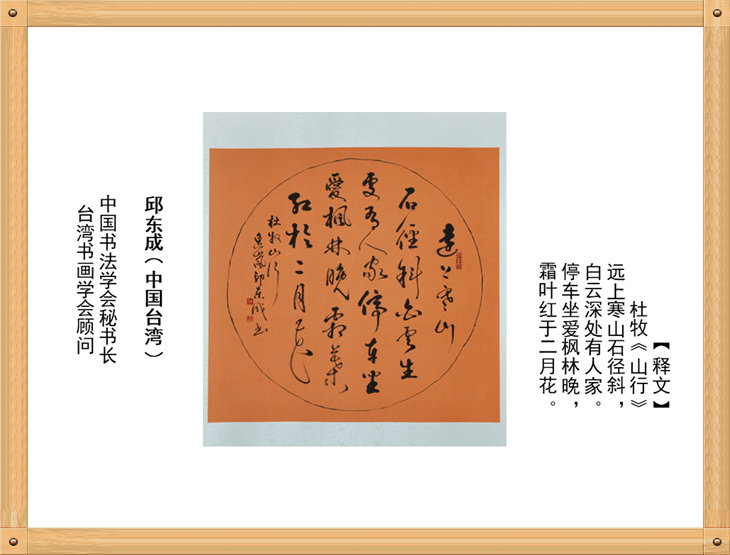 【释文】
杜牧《山行》
远上寒山石径斜，
白云深处有人家。
停车坐爱枫林晚，
霜叶红于二月花。
遠上寒山
石徑斜白雲生
處有人家停車坐
愛楓林晚霜葉
紅於二月花
杜牧山行
邱東成書
邱东成（中国台湾）
中国书法学会秘书长
台湾书画学会顾问